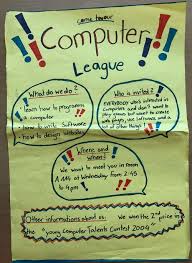 come to our
Computer
League
What do we do?
learn how to programm
a computer
how to edit software
how to design websites
Who is invited?
EVERYBODY who's interested in
Computers and don't want to
play games but want to create
web pages, use software, and a
lot of other things!
Where and
when?
We want to meet you in room
A 114 at Wednesday from 2:45
to 4 pm
Other informations about us: We won the 2nd price in
the "young Computer Talents Contest 2004"